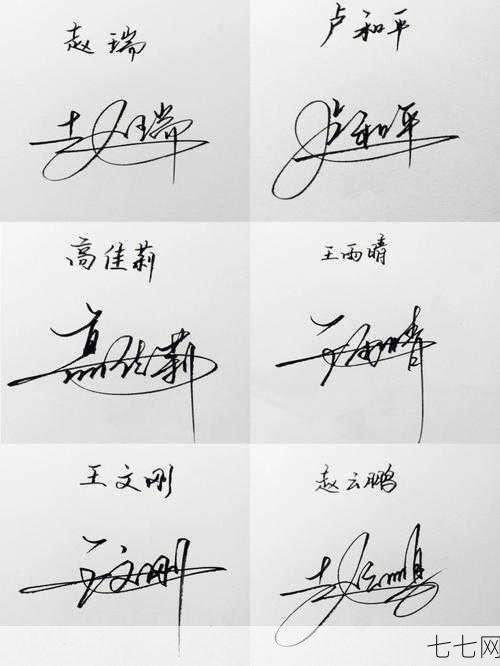 赵瑞
赵瑞
卢和平
卢和平
高佳莉
高佳莉
王雨晴
王雨晴
王文刚
王文刚
赵云鹏
赵云鹏
七七网